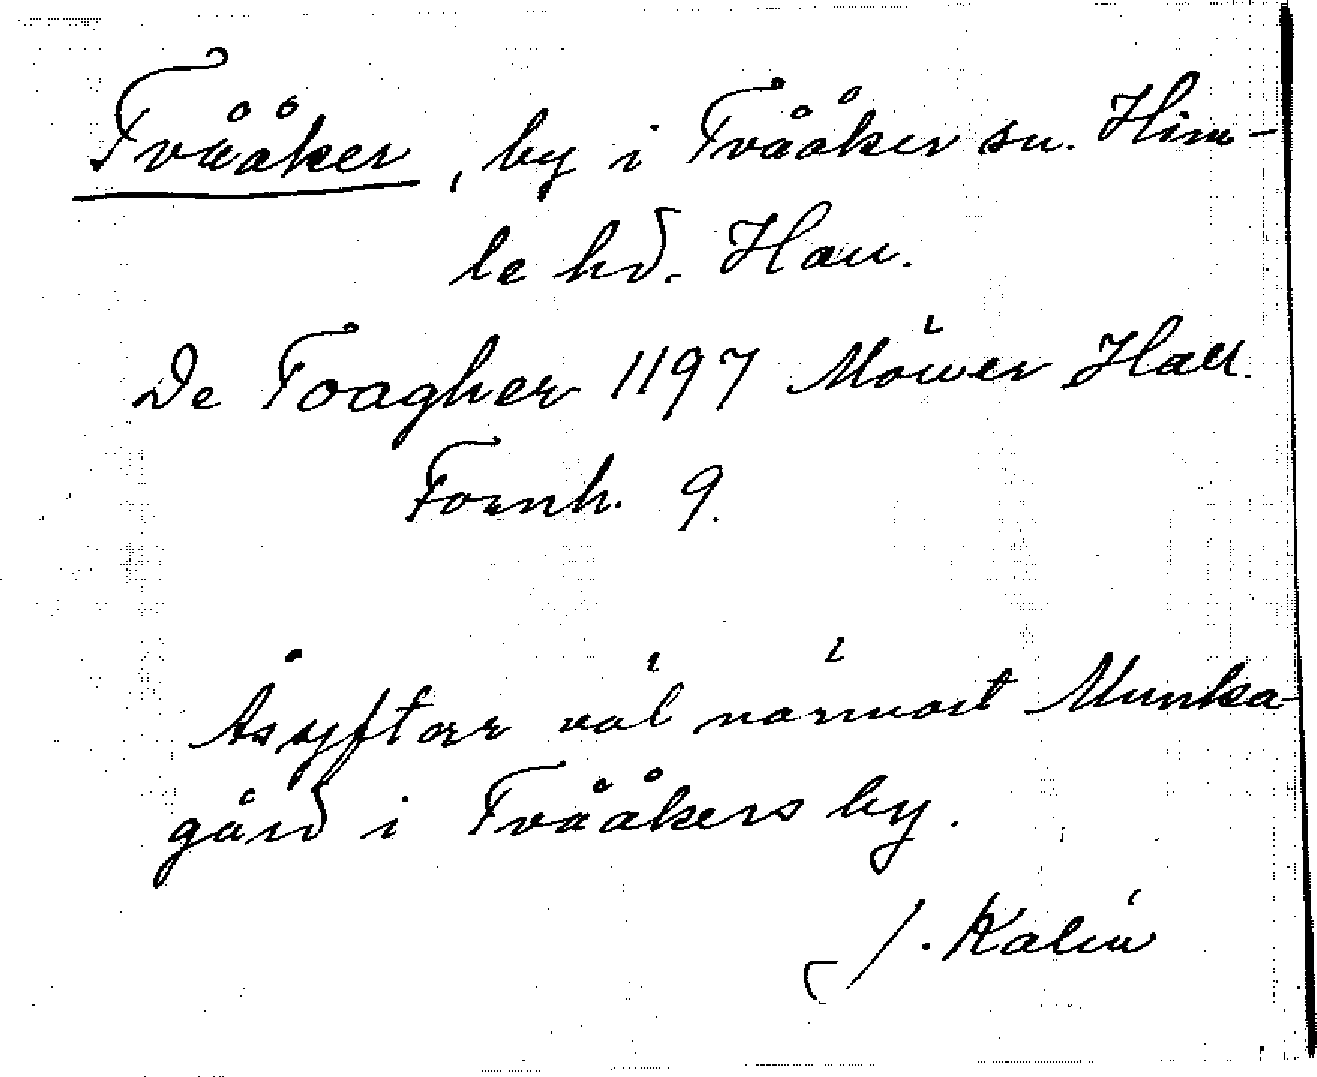 Tvååker, by i Tvååker sn. Him-
le hd. Hall.
De Toagher 1197 Möller Hall.
Fornh. 9.
Åsyftar väl närmast Munka-
gård i Tvååkers by.
J. Kalén